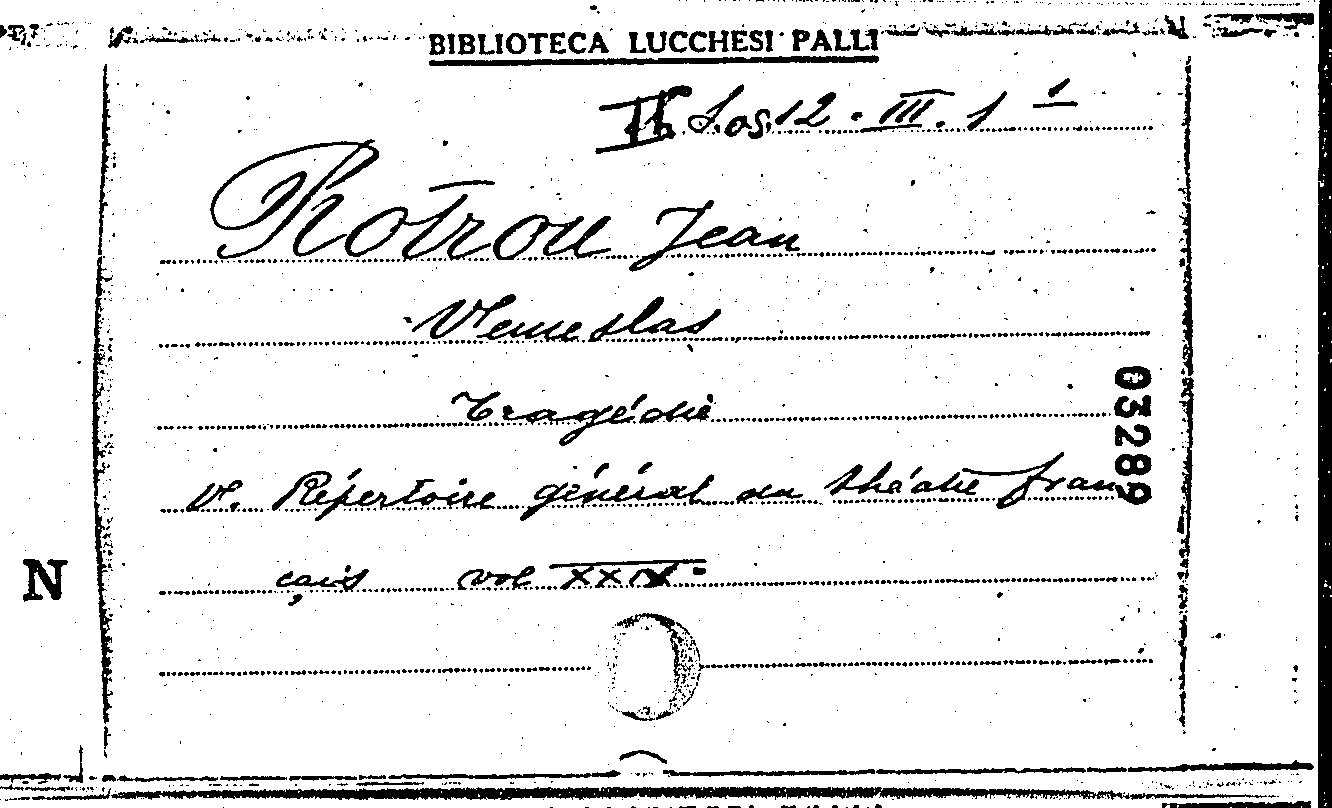 BIBLIOTECA LUCCHESI PALLI
S.os. 12. III. 1 1
Rotrou Jean
Venceslas
Tragédie
03289
V. Répertoire général du théatre fran
çais vol XXIX.
N